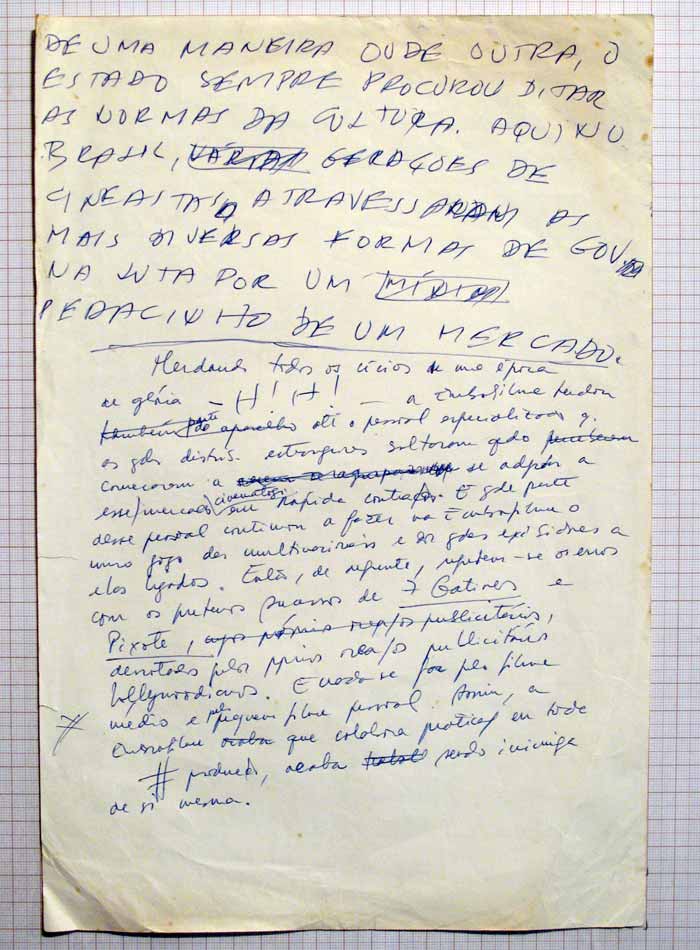 DE UMA MANEIRA OU DE OUTRA, O
ESTADO SEMPRE PROCUROU DITAR
AS NORMAS DA CULTURA. AQUI NO
BRASIL, VÁRIAS GERAÇÕES DE
CINEASTAS ATRAVESSARAM AS
MAIS DIVERSAS FORMAS DE GOV.
NA LUTA POR UM
PEDACINHO DE UM MERCADO.
Herdando todos os vícios de uma época
de glória — H! H! — a Embrafilme herdou
também parte do aparelho até o pessoal especializado q.
as gdes distrib. estrangeiras soltaram qdo
começaram a se adaptar a
esse mercado cinematogr. em rápida contração. E gde parte
desse pessoal continua a fazer na Embrafilme o
mesmo jogo das multinacionais e dos gdes exibidores a
elas ligados. Então, de repente, repetem-se os erros
com os sucessos de 7 Gatinhos e
Pixote, publicitários,
derrotados pelos orçaços publicitários
hollywoodianos. E nada se faz pelo filme
médio e pelo pequeno filme pessoal. Assim, a
Embrafilme acaba que colabora em toda
produção, acaba sendo inimiga
de si mesma.